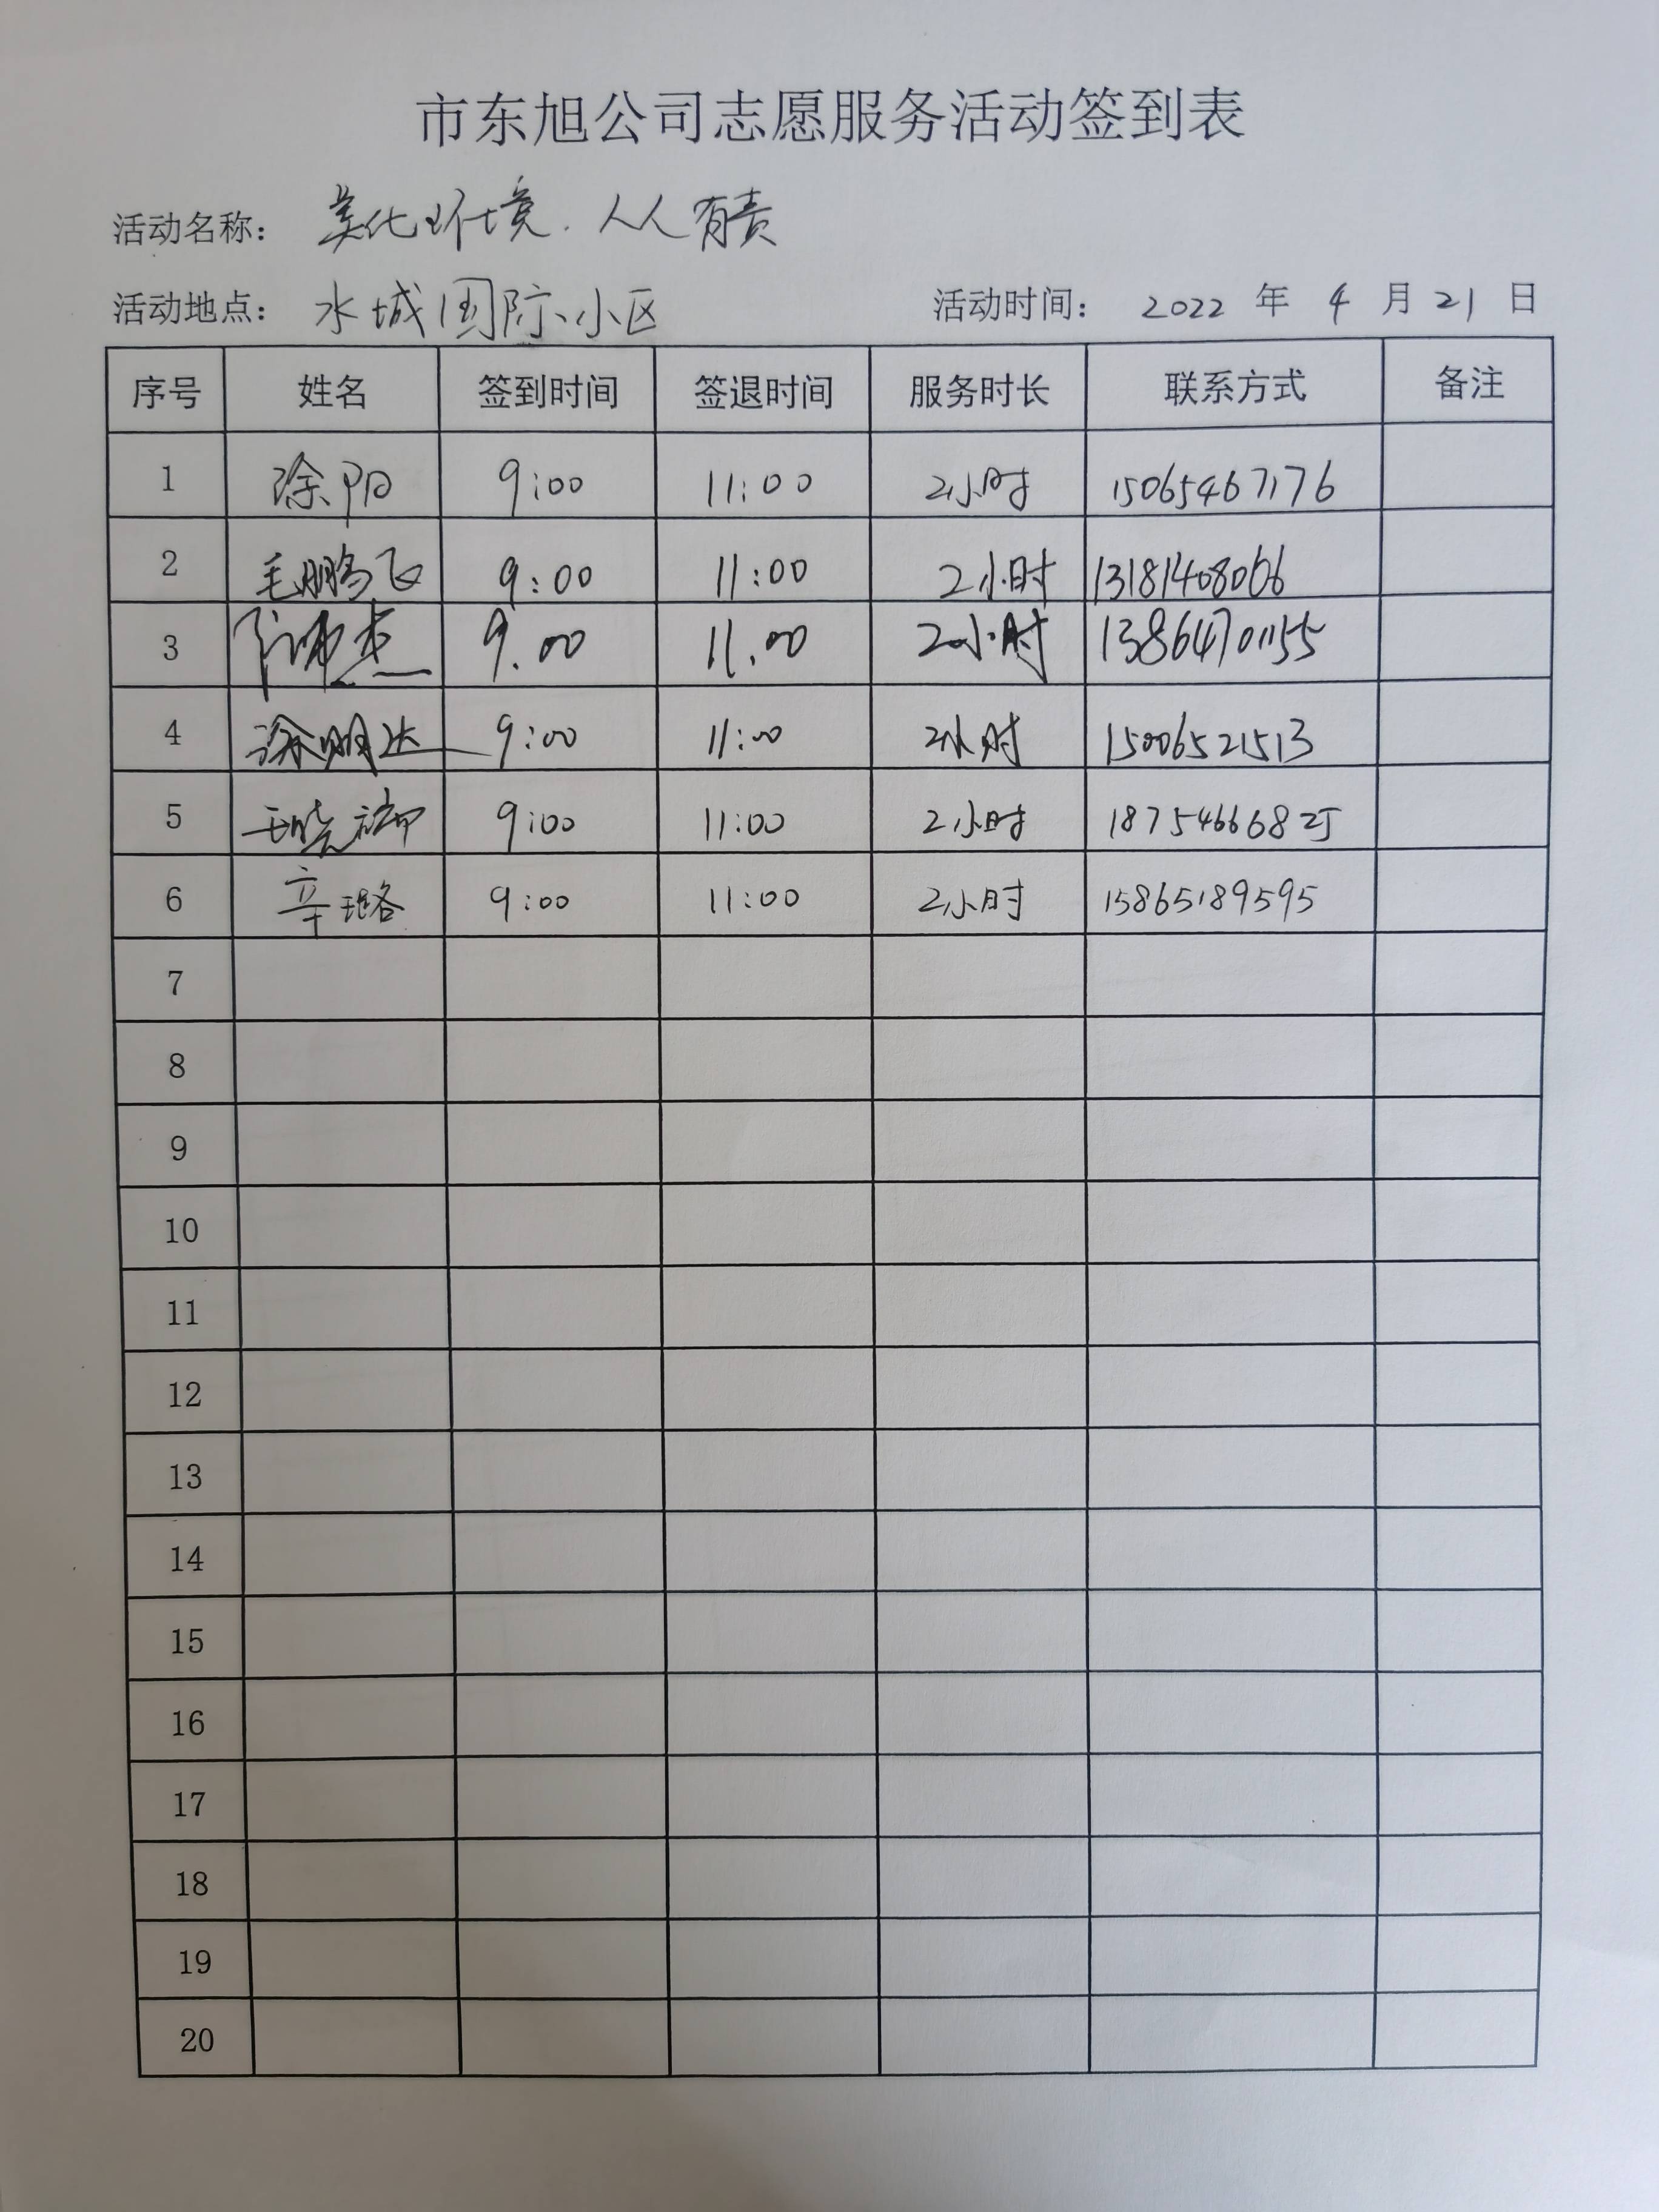 市东旭公司志愿服务活动签到表
活动名称： 美化环境.人人有责
活动地点： 水城国际小区 活动时间： 2022 年 4 月 21 日
序号 姓名 签到时间 签退时间 服务时长 联系方式 备注
1 徐阳 9:00 11:00 2小时 15065467176
2 毛鹏飞 9:00 11:00 2小时 13181408066
3 9.00 11.00 2小时 13864701155
4 徐明达 9:00 11:00 2小时 15006521513
5 王晓 9:00 11:00 2小时 18754666825
6 辛璐 9:00 11:00 2小时 15865189595
7
8
9
10
11
12
13
14
15
16
17
18
19
20